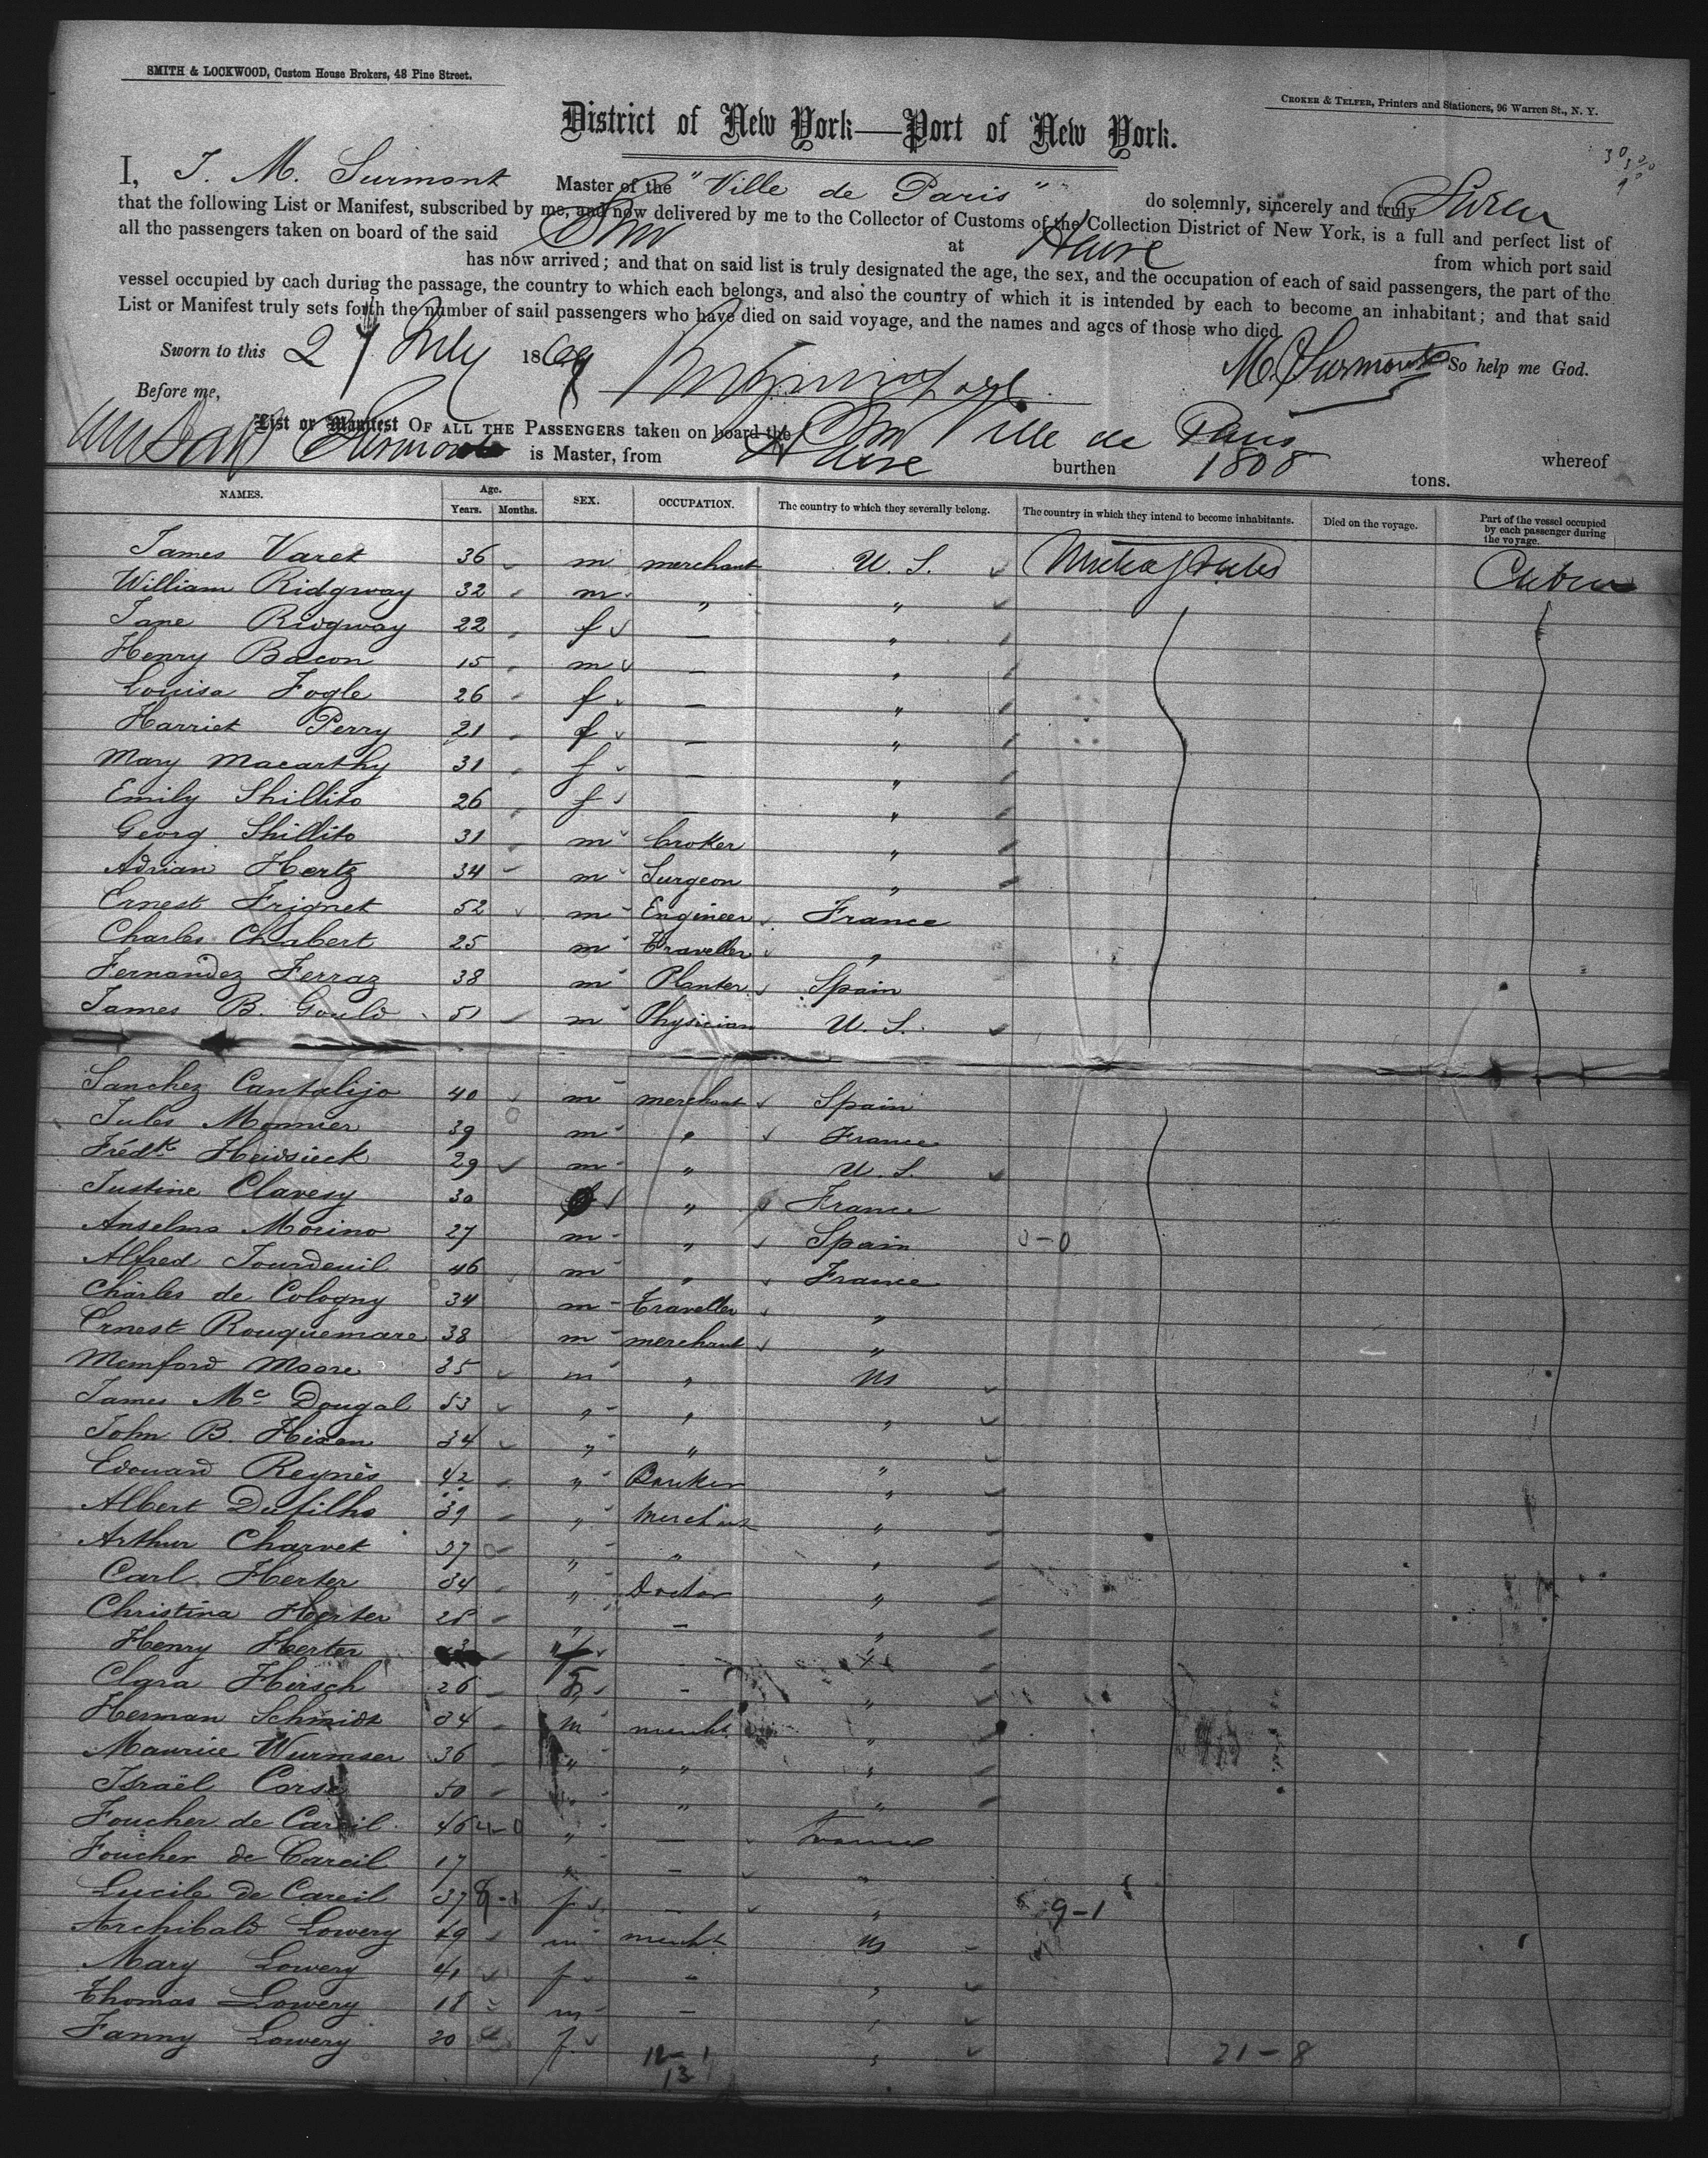 SMITH & LOCKWOOD, Custom House Brokers, 48 Pine Street.
CROKER & TELFER, Printers and Stationers, 96 Warren St., N. Y.
District of New York—Port of New York.
I, J. M. Surmont Master of the "Ville de Paris" do solemnly, sincerely and truly Swear
that the following List or Manifest, subscribed by me, and now delivered by me to the Collector of Customs of the Collection District of New York, is a full and perfect list of
all the passengers taken on board of the said at Havre from which port said
has now arrived; and that on said list is truly designated the age, the sex, and the occupation of each of said passengers, the part of the
vessel occupied by each during the passage, the country to which each belongs, and also the country of which it is intended by each to become an inhabitant; and that said
List or Manifest truly sets forth the number of said passengers who have died on said voyage, and the names and ages of those who died.
Sworn to this 27 July 1869 Surmont So help me God.
Before me,
List or Manifest OF ALL THE PASSENGERS taken on board the Ville de Paris
Surmont is Master, from Havre burthen 1808 tons. whereof
NAMES. Age. Years. Months. SEX. OCCUPATION. The country to which they severally belong. The country in which they intend to become inhabitants. Died on the voyage. Part of the vessel occupied by each passenger during the voyage.
James Varet 36 m merchant U S. United States Cabin
William Ridgway 32 m " "
Jane Ridgway 22 f — "
Henry Bacon 15 m — "
Louisa Fogle 26 f — "
Harriet Perry 21 f — "
Mary Macarthy 31 f — "
Emily Shillito 26 f — "
Georg Shillito 31 m broker "
Adrian Hertz 34 m Surgeon "
Ernest Frignet 52 m Engineer France
Charles Chabert 25 m Traveller "
Fernandez Ferraz 38 m Planter Spain
James B. Gould 51 m Physician U. S.
Sanchez Cantalijo 40 m merchant Spain
Jules Monnier 39 m " France
Frédk Heidsieck 29 m " U. S.
Justine Clavesy 30 f " France
Anselmo Morino 27 m " Spain 0-0
Alfred Jourdeuil 46 m " France
Charles de Cologny 34 m Traveller "
Ernest Rouquemare 38 m merchant "
Memford Moore 35 m " US
James Mc Dougal 53 " " "
John B. Hixon 34 " " "
Edouard Reynès 42 " Banker "
Albert Dufilho 39 " Merchant "
Arthur Charvet 37 " " "
Carl Herter 34 " Doctor "
Christina Herter 25 " — "
Henry Herter 3 - "
Clara Hirsch 26 - "
Herman Schmidt 34 m mercht "
Maurice Wurmser 36 " " "
Israël Corse 50 " " "
Foucher de Careil 46 " — France
Foucher de Careil 17 " — "
Lucile de Careil 37 f — " 9-1
Archibald Lowery 49 m mercht US
Mary Lowery 41 f " "
Thomas Lowery 18 m — "
Fanny Lowery 20 f "
12-1 21-8
13